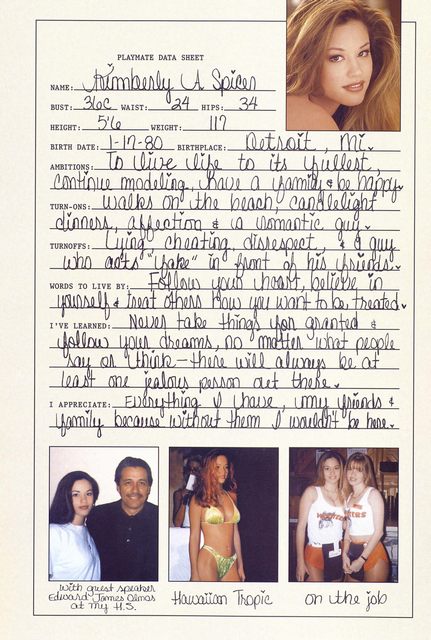 PLAYMATE DATA SHEET
NAME: Kimberly A Spicer
BUST: 36C WAIST: 24 HIPS: 34
HEIGHT: 5'6 WEIGHT: 117
BIRTH DATE: 1-17-80 BIRTHPLACE: Detroit, Mi.
AMBITIONS: To live life to its fullest,
continue modeling, have a family & be happy.
TURN-ONS: walks on the beach, candlelight
dinners, affection & a romantic guy.
TURNOFFS: Lying, cheating, disrespect, & a guy
who acts "fake" in front of his friends.
WORDS TO LIVE BY: Follow your heart, believe in
yourself & treat others how you want to be treated.
I'VE LEARNED: Never take things for granted &
follow your dreams, no matter what people
say or think - there will always be at
least one jealous person out there.
I APPRECIATE: Everything I have, my friends &
family because without them I wouldn't be here.
with guest speaker
Edward James Olmos
at my H.S.
Hawaiian Tropic
on the job